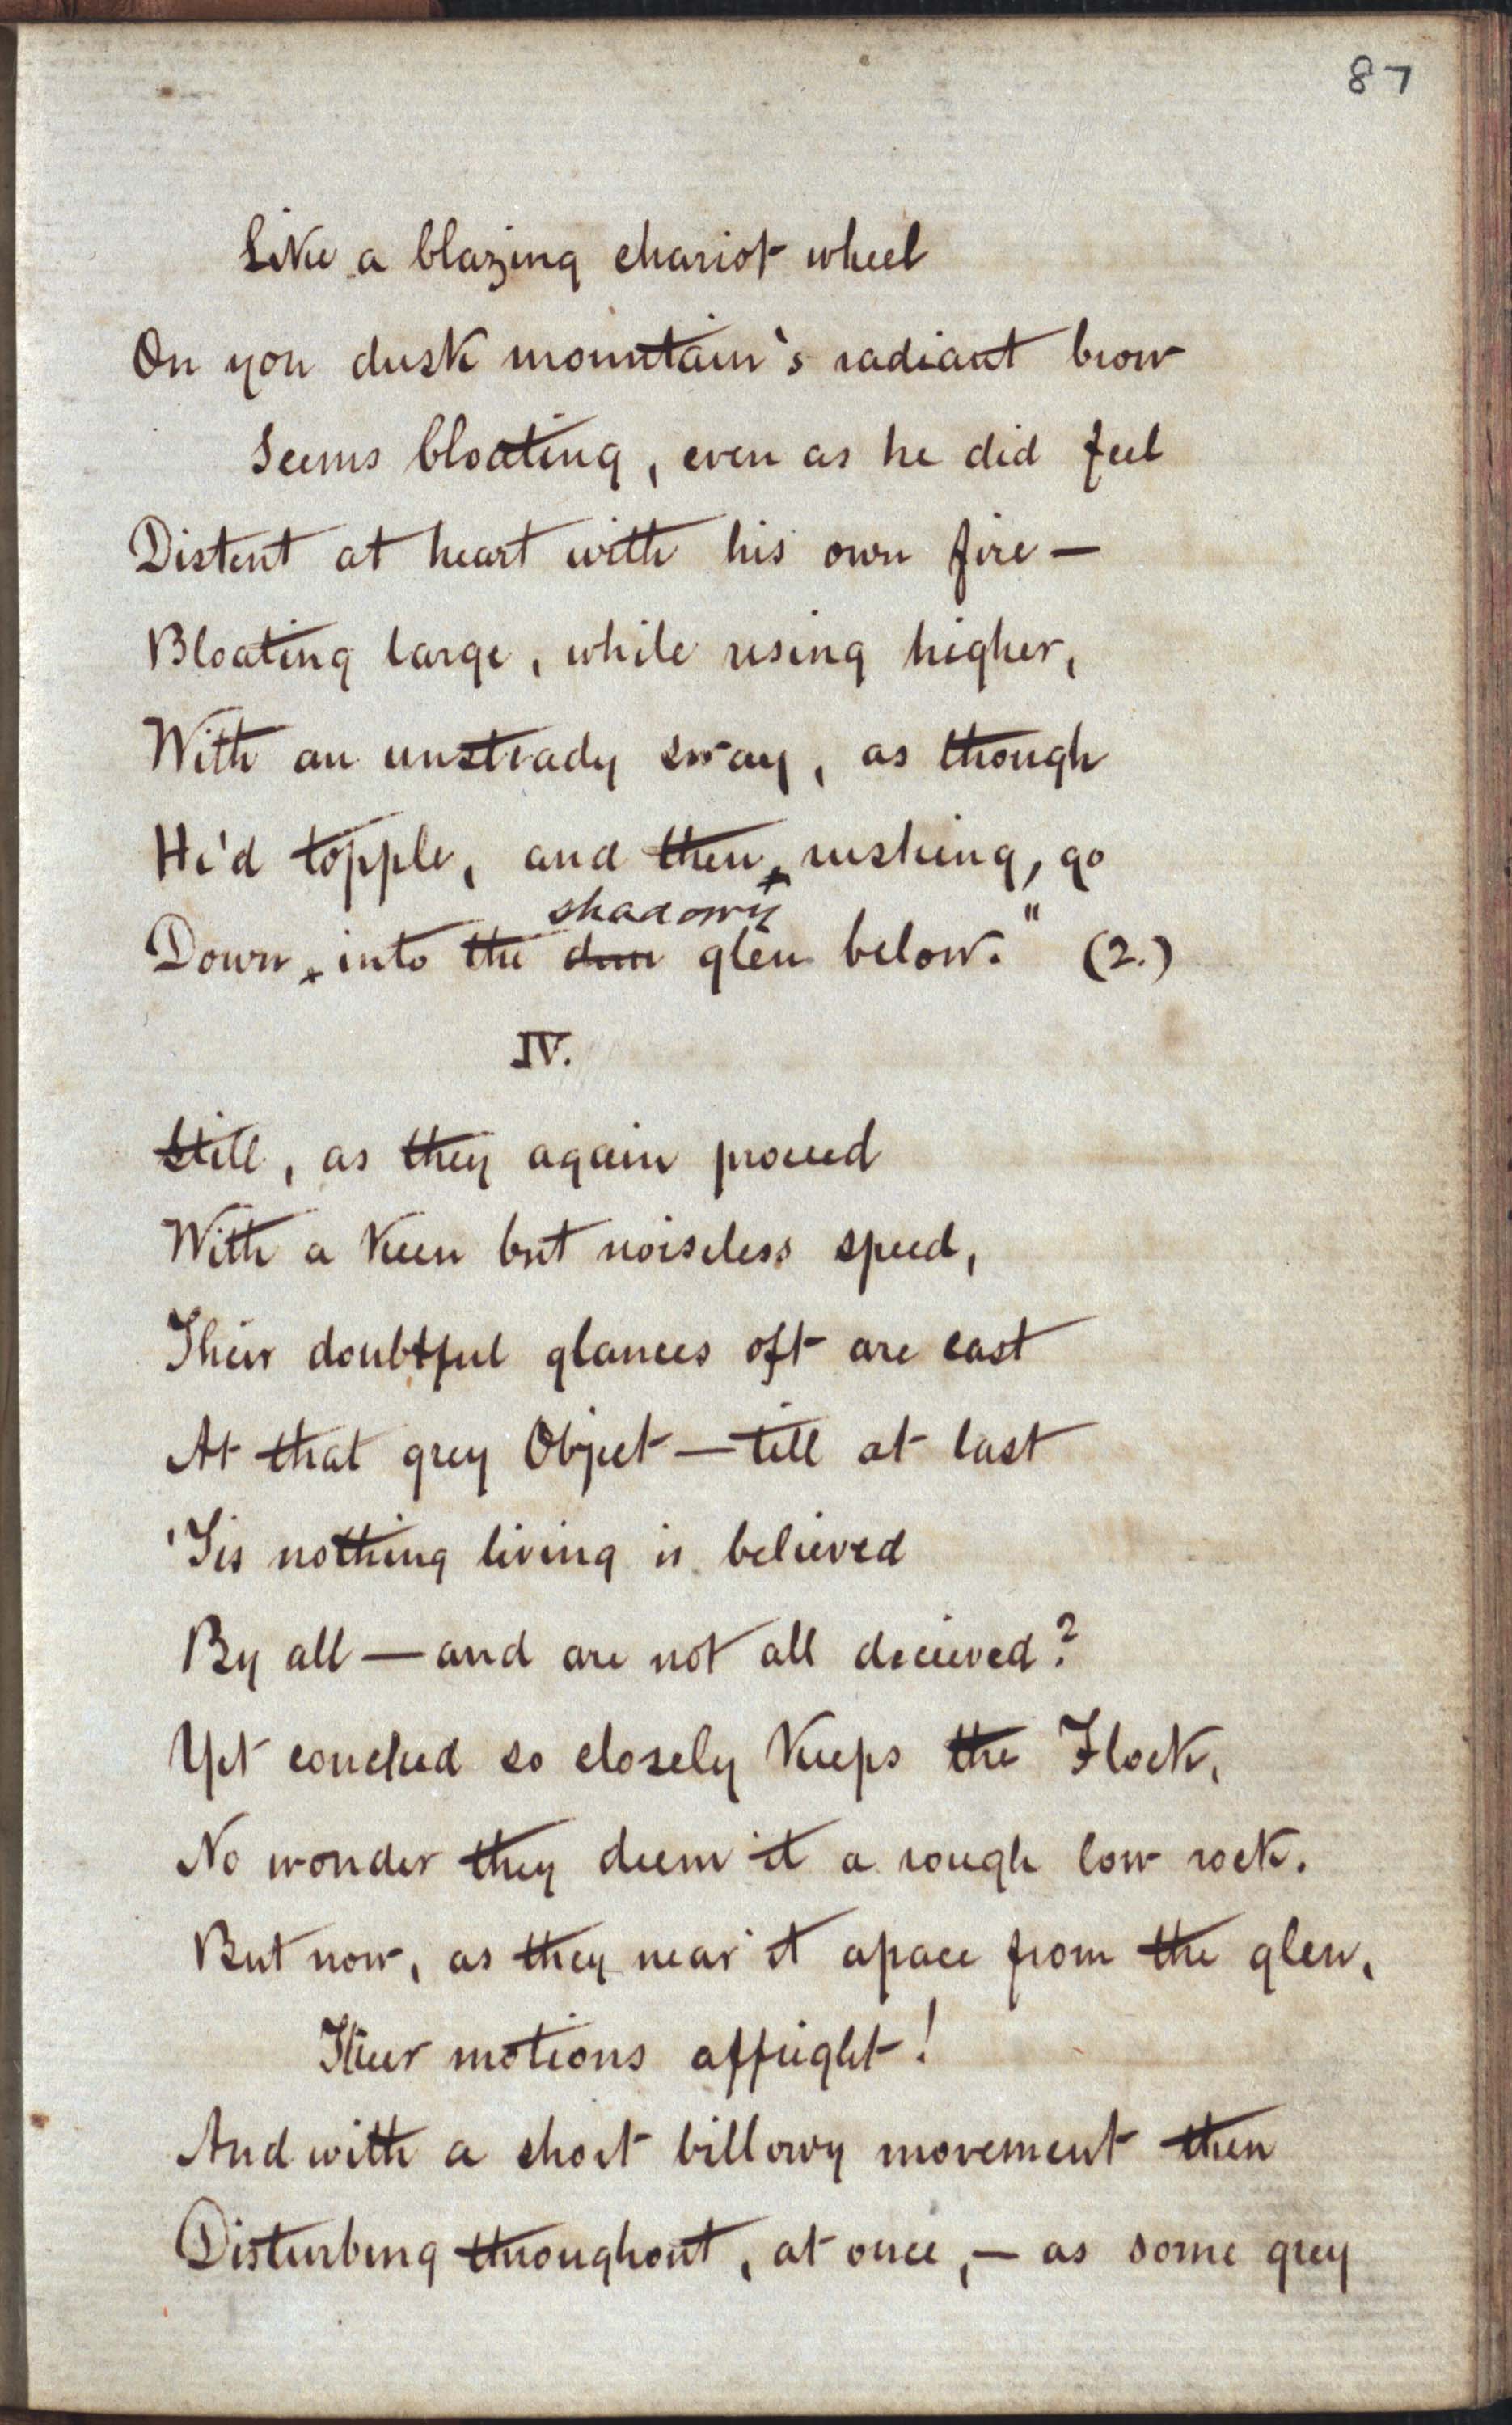 87
Like a blazing chariot wheel
On yon dusk mountain's radiant brow
Seems bloating, even as he did feel
Distent at heart with his own fire —
Bloating large, while rising higher,
With an unsteady sway, as though
He'd topple, and then, rushing, go
shadowy
Down, into the dun glen below." (2.)
IV.
Still, as they again proceed
With a keen but noiseless speed,
Their doubtful glances oft are cast
At that grey Object — till at last
'Tis nothing living is believed
By all — and are not all decieved?
Yet couched so closely keeps the Flock,
No wonder they deem it a rough low rock.
But now, as they near it apace from the glen,
Their motions affright!
And with a short billowy movement then
Disturbing throughout, at once, — as some grey